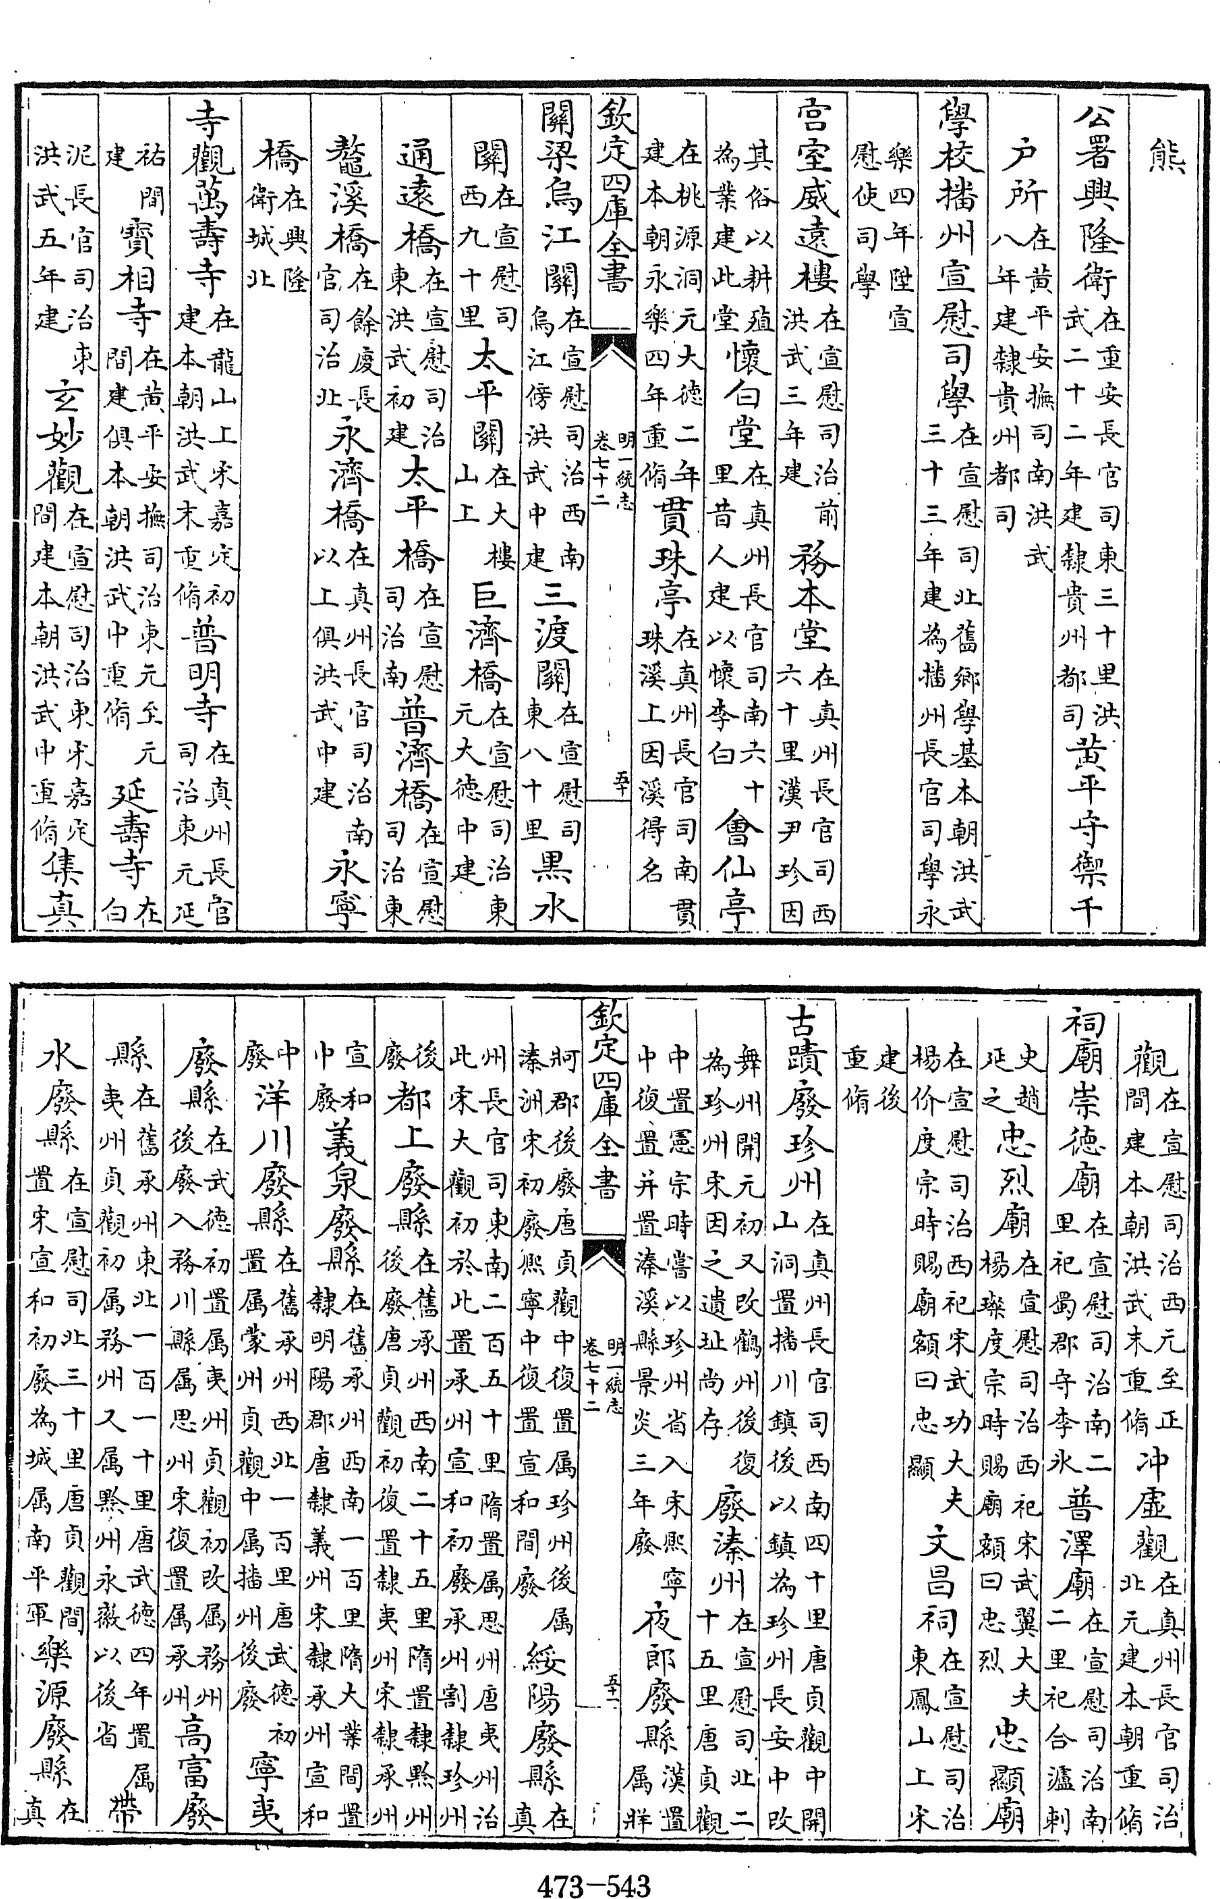 熊
公署興隆衛在重安長官司東三十里洪武二十二年建隸貴州都司黄平守禦千
户所在黄平安撫司南洪武八年建隸貴州都司
學校播州宣慰司學在宣慰司北舊鄉學基本朝洪武三十三年建為播州長官司學永
樂四年陞宣慰使司學
宫室威遠樓在宣慰司治前洪武三年建務本堂在真州長官司西六十里漢尹珍因
其俗以耕殖為業建此堂懷白堂在真州長官司南六十里昔人建以懷李白會仙亭
在桃源洞元大德二年建本朝永樂四年重脩貫珠亭在真州長官司南貫珠溪上因溪得名
欽定四庫全書
明一統志
卷七十二
五十
關梁烏江關在宣慰司治西南烏江傍洪武中建三渡關在宣慰司東八十里黒水
關在宣慰司西九十里太平關在大樓山上巨濟橋在宣慰司治東元大德中建
通遠橋在宣慰司治東洪武初建太平橋在宣慰司治南普濟橋在宣慰司治東
鼇溪橋在餘慶長官司治北永濟橋在真州長官司治南以上俱洪武中建永寧
橋在興隆衛城北
寺觀萬壽寺在龍山上宋嘉定初建本朝洪武末重脩普明寺在真州長官司治東元延
祐間建寶相寺在黄平安撫司治東元至元間建俱本朝洪武中重脩延壽寺在白
泥長官司治東洪武五年建玄妙觀在宣慰司治東宋嘉定間建本朝洪武中重脩集真
觀在宣慰司治西元至正間建本朝洪武末重脩冲虛觀在真州長官司治北元建本朝重脩
祠廟崇德廟在宣慰司治南二里祀蜀郡守李氷普澤廟在宣慰司治南二里祀合瀘刺
史趙延之忠烈廟在宣慰司治西祀宋武翼大夫楊粲度宗時賜廟額曰忠烈忠顯廟
在宣慰司治西祀宋武功大夫楊价度宗時賜廟額曰忠顯文昌祠在宣慰司治東鳳山上宋
建後重脩
古蹟廢珍州在真州長官司西南四十里唐貞觀中開山洞置播川鎮後以鎮為珍州長安中改
舞州開元初又改鶴州後復為珍州宋因之遺址尚存廢溱州在宣慰司北二十五里唐貞觀
中置憲宗時嘗以珍州省入宋熙寧中復置并置溱溪縣景炎三年廢夜郎廢縣漢置属牂
欽定四庫全書
明一統志
卷七十二
五十一
牁郡後廢唐貞觀中復置属珍州後属溱洲宋初廢熙寧中復置宣和間廢綏陽廢縣在真
州長官司東南二百五十里隋置属思州唐夷州治此宋大觀初於此置承州宣和初廢承州割隸珍州
後廢都上廢縣在舊承州西南二十五里隋置隸黔州後廢唐貞觀初復置隸夷州宋隸承州
宣和中廢義泉廢縣在舊承州西南一百里隋大業間置隸明陽郡唐隸義州宋隸承州宣和
中廢洋川廢縣在舊承州西北一百里唐武德初置属蒙州貞觀中属播州後廢寧夷
廢縣在武德初置属夷州貞觀初改属務州後廢入務川縣属思州宋復置属承州高富廢
縣在舊承州東北一百一十里唐武德四年置属夷州貞觀初属務州又属黔州永徽以後省帶
水廢縣在宣慰司北三十里唐貞觀間置宋宣和初廢為城属南平軍樂源廢縣在真
473-543